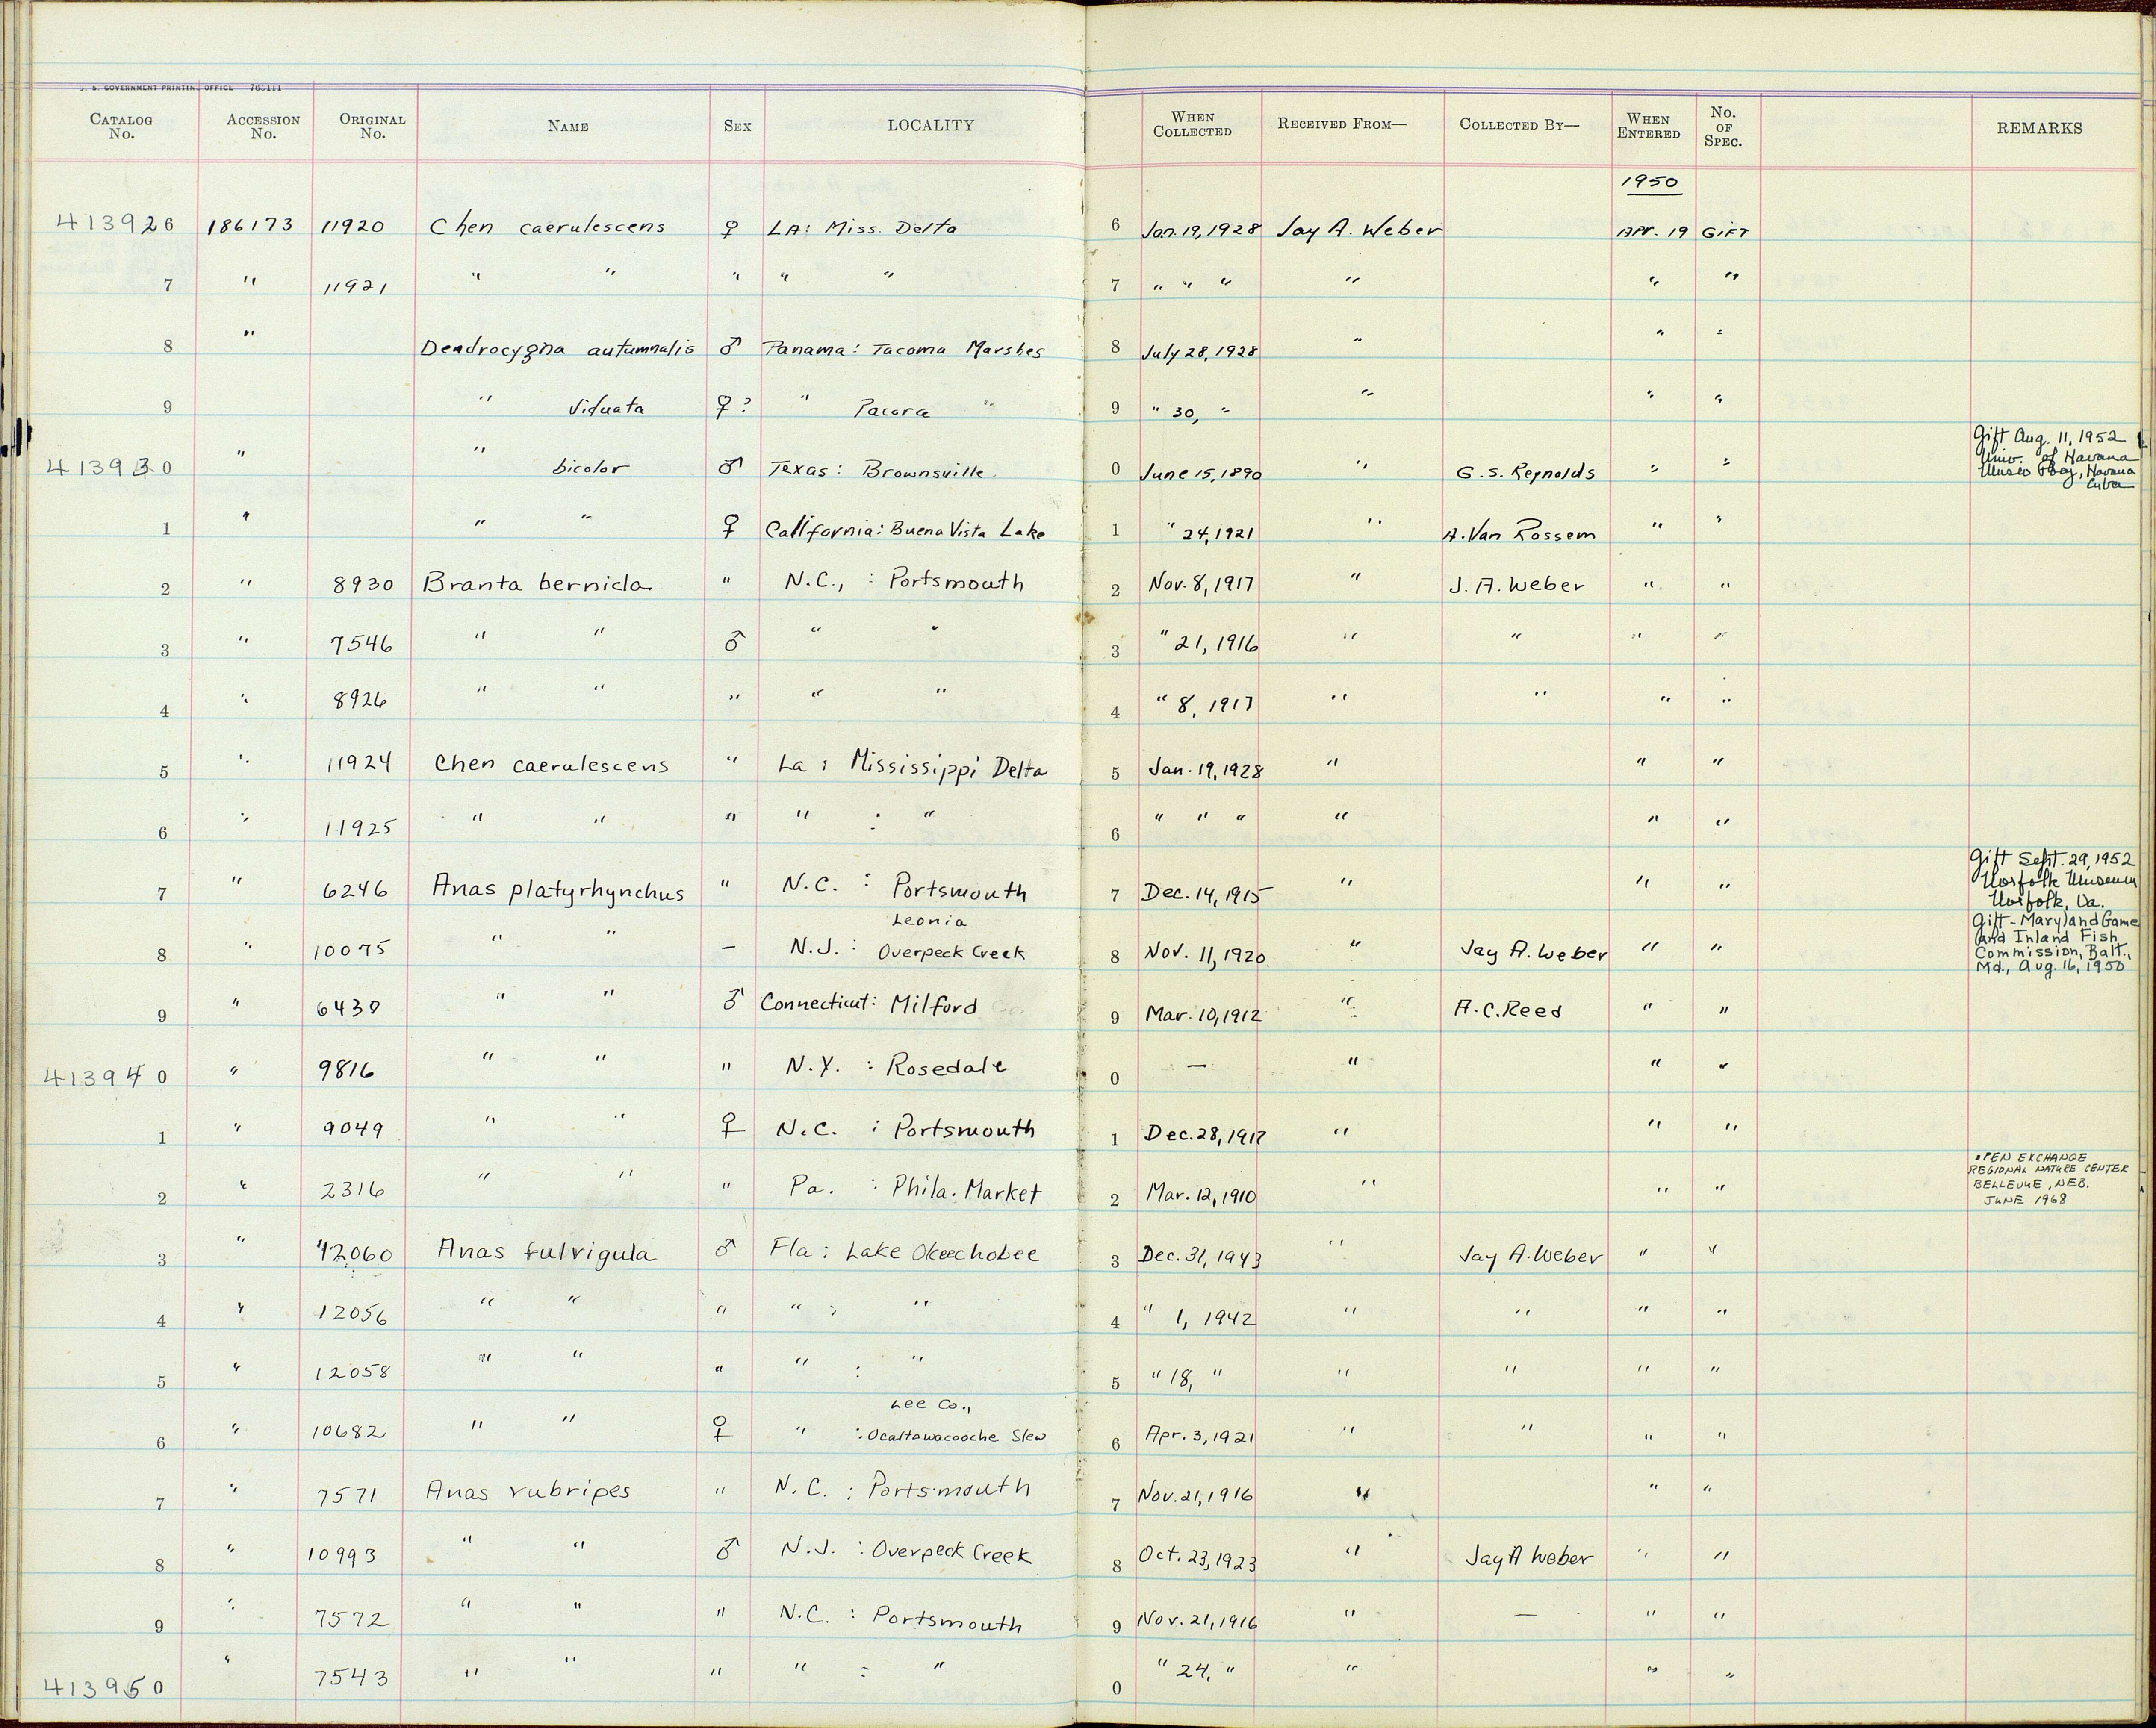 U. S. GOVERNMENT PRINTING OFFICE 765111
CATALOG No. ACCESSION No. ORIGINAL No. NAME SEX LOCALITY WHEN COLLECTED RECEIVED FROM— COLLECTED BY— WHEN ENTERED No. OF SPEC. REMARKS
1950
413926 186173 11920 Chen caerulescens ♀ LA: Miss. Delta 6 Jan. 19, 1928 Jay A. Weber APR. 19 GIFT
7 " 11921 " " " " " 7 " " " " " "
8 " Dendrocygna autumnalis ♂ Panama: Tacoma Marshes 8 July 28, 1928 " " "
9 " viduata ♀? " Pacora " 9 " 30, " " " "
413930 " " bicolor ♂ Texas: Brownsville 0 June 15, 1890 " G. S. Reynolds " " Gift Aug. 11, 1952
Univ. of Havana
Museo Poey, Havana
Cuba
1 " " " ♀ California: Buena Vista Lake 1 " 24, 1921 " A. Van Rossem " "
2 " 8930 Branta bernicla " N.C., : Portsmouth 2 Nov. 8, 1917 " J. A. Weber " "
3 " 7546 " " ♂ " " 3 " 21, 1916 " " " "
4 " 8926 " " " " " 4 " 8, 1917 " " " "
5 " 11924 Chen caerulescens " La : Mississippi Delta 5 Jan. 19, 1928 " " "
6 " 11925 " " " " : " 6 " " " " " "
7 " 6246 Anas platyrhynchus " N.C. : Portsmouth 7 Dec. 14, 1915 " " " Gift Sept. 29, 1952
Norfolk Museum
Norfolk, Va.
Leonia
8 " 10075 " " — N.J. : Overpeck Creek 8 Nov. 11, 1920 " Jay A. Weber " " Gift - Maryland Game
and Inland Fish
Commission, Balt.,
Md., Aug. 16, 1950
9 " 6430 " " ♂ Connecticut: Milford 9 Mar. 10, 1912 " A. C. Reed " "
413940 " 9816 " " " N.Y. : Rosedale 0 — " " "
1 " 9049 " " ♀ N.C. : Portsmouth 1 Dec. 28, 1917 " " "
2 " 2316 " " " Pa. : Phila. Market 2 Mar. 12, 1910 " " " OPEN EXCHANGE
REGIONAL NATURE CENTER
BELLEVUE, NEB.
JUNE 1968
3 " 12060 Anas fulvigula ♂ Fla : Lake Okeechobee 3 Dec. 31, 1943 " Jay A. Weber " "
4 " 12056 " " " " : " 4 " 1, 1942 " " " "
5 " 12058 " " " " : " 5 " 18, " " " " "
Lee Co.,
6 " 10682 " " ♀ " : Ocaltawacooche Slew 6 Apr. 3, 1921 " " " "
7 " 7571 Anas rubripes " N.C. : Portsmouth 7 Nov. 21, 1916 " " "
8 " 10993 " " ♂ N.J. : Overpeck Creek 8 Oct. 23, 1923 " Jay A Weber " "
9 " 7572 " " " N.C. : Portsmouth 9 Nov. 21, 1916 " — " "
413950 " 7543 " " " " : " 0 " 24, " " " "